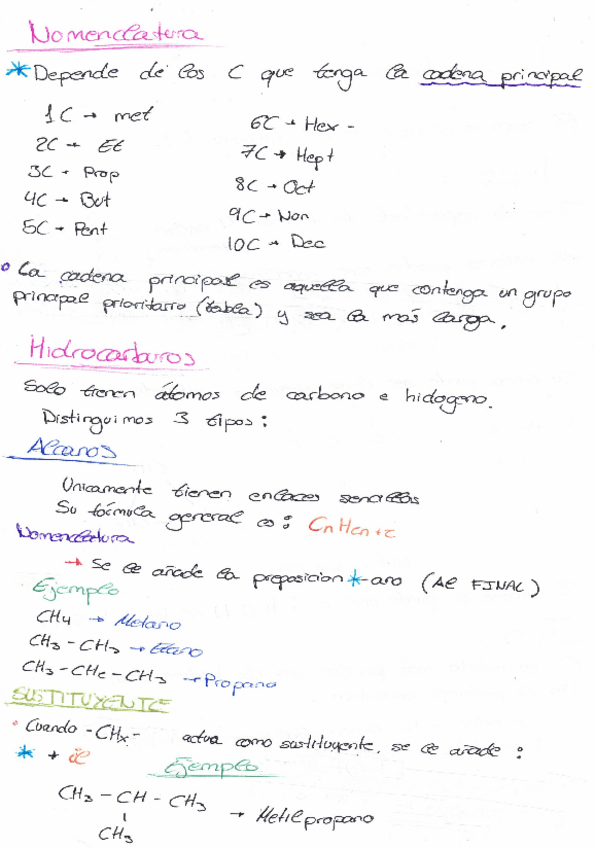 Nomenclatura
* Depende de los C que tenga la cadena principal
1C → met
2C → Et
3C → Prop
4C → But
5C → Pent
6C → Hex -
7C → Hept
8C → Oct
9C → Non
10C → Dec
La cadena principal es aquella que contenga un grupo
principal prioritario (tabla) y sea la más larga.
Hidrocarburos
Solo tienen átomos de carbono e hidogeno.
Distinguimos 3 tipos:
Alcanos
Unicamente tienen enlaces sencillos
Su fórmula general es: CnH2n+2
Nomenclatura
→ Se le añade la preposicion *-ano (Al FINAL)
Ejemplo
CH4 → Metano
CH3 - CH3 → Etano
CH3 - CH2 - CH3 → Propano
SUSTITUYENTE
• Cuando -CHx- actua como sustituyente, se le añade:
* + il
Ejemplo
CH3 - CH - CH3 → Metilpropano
CH3